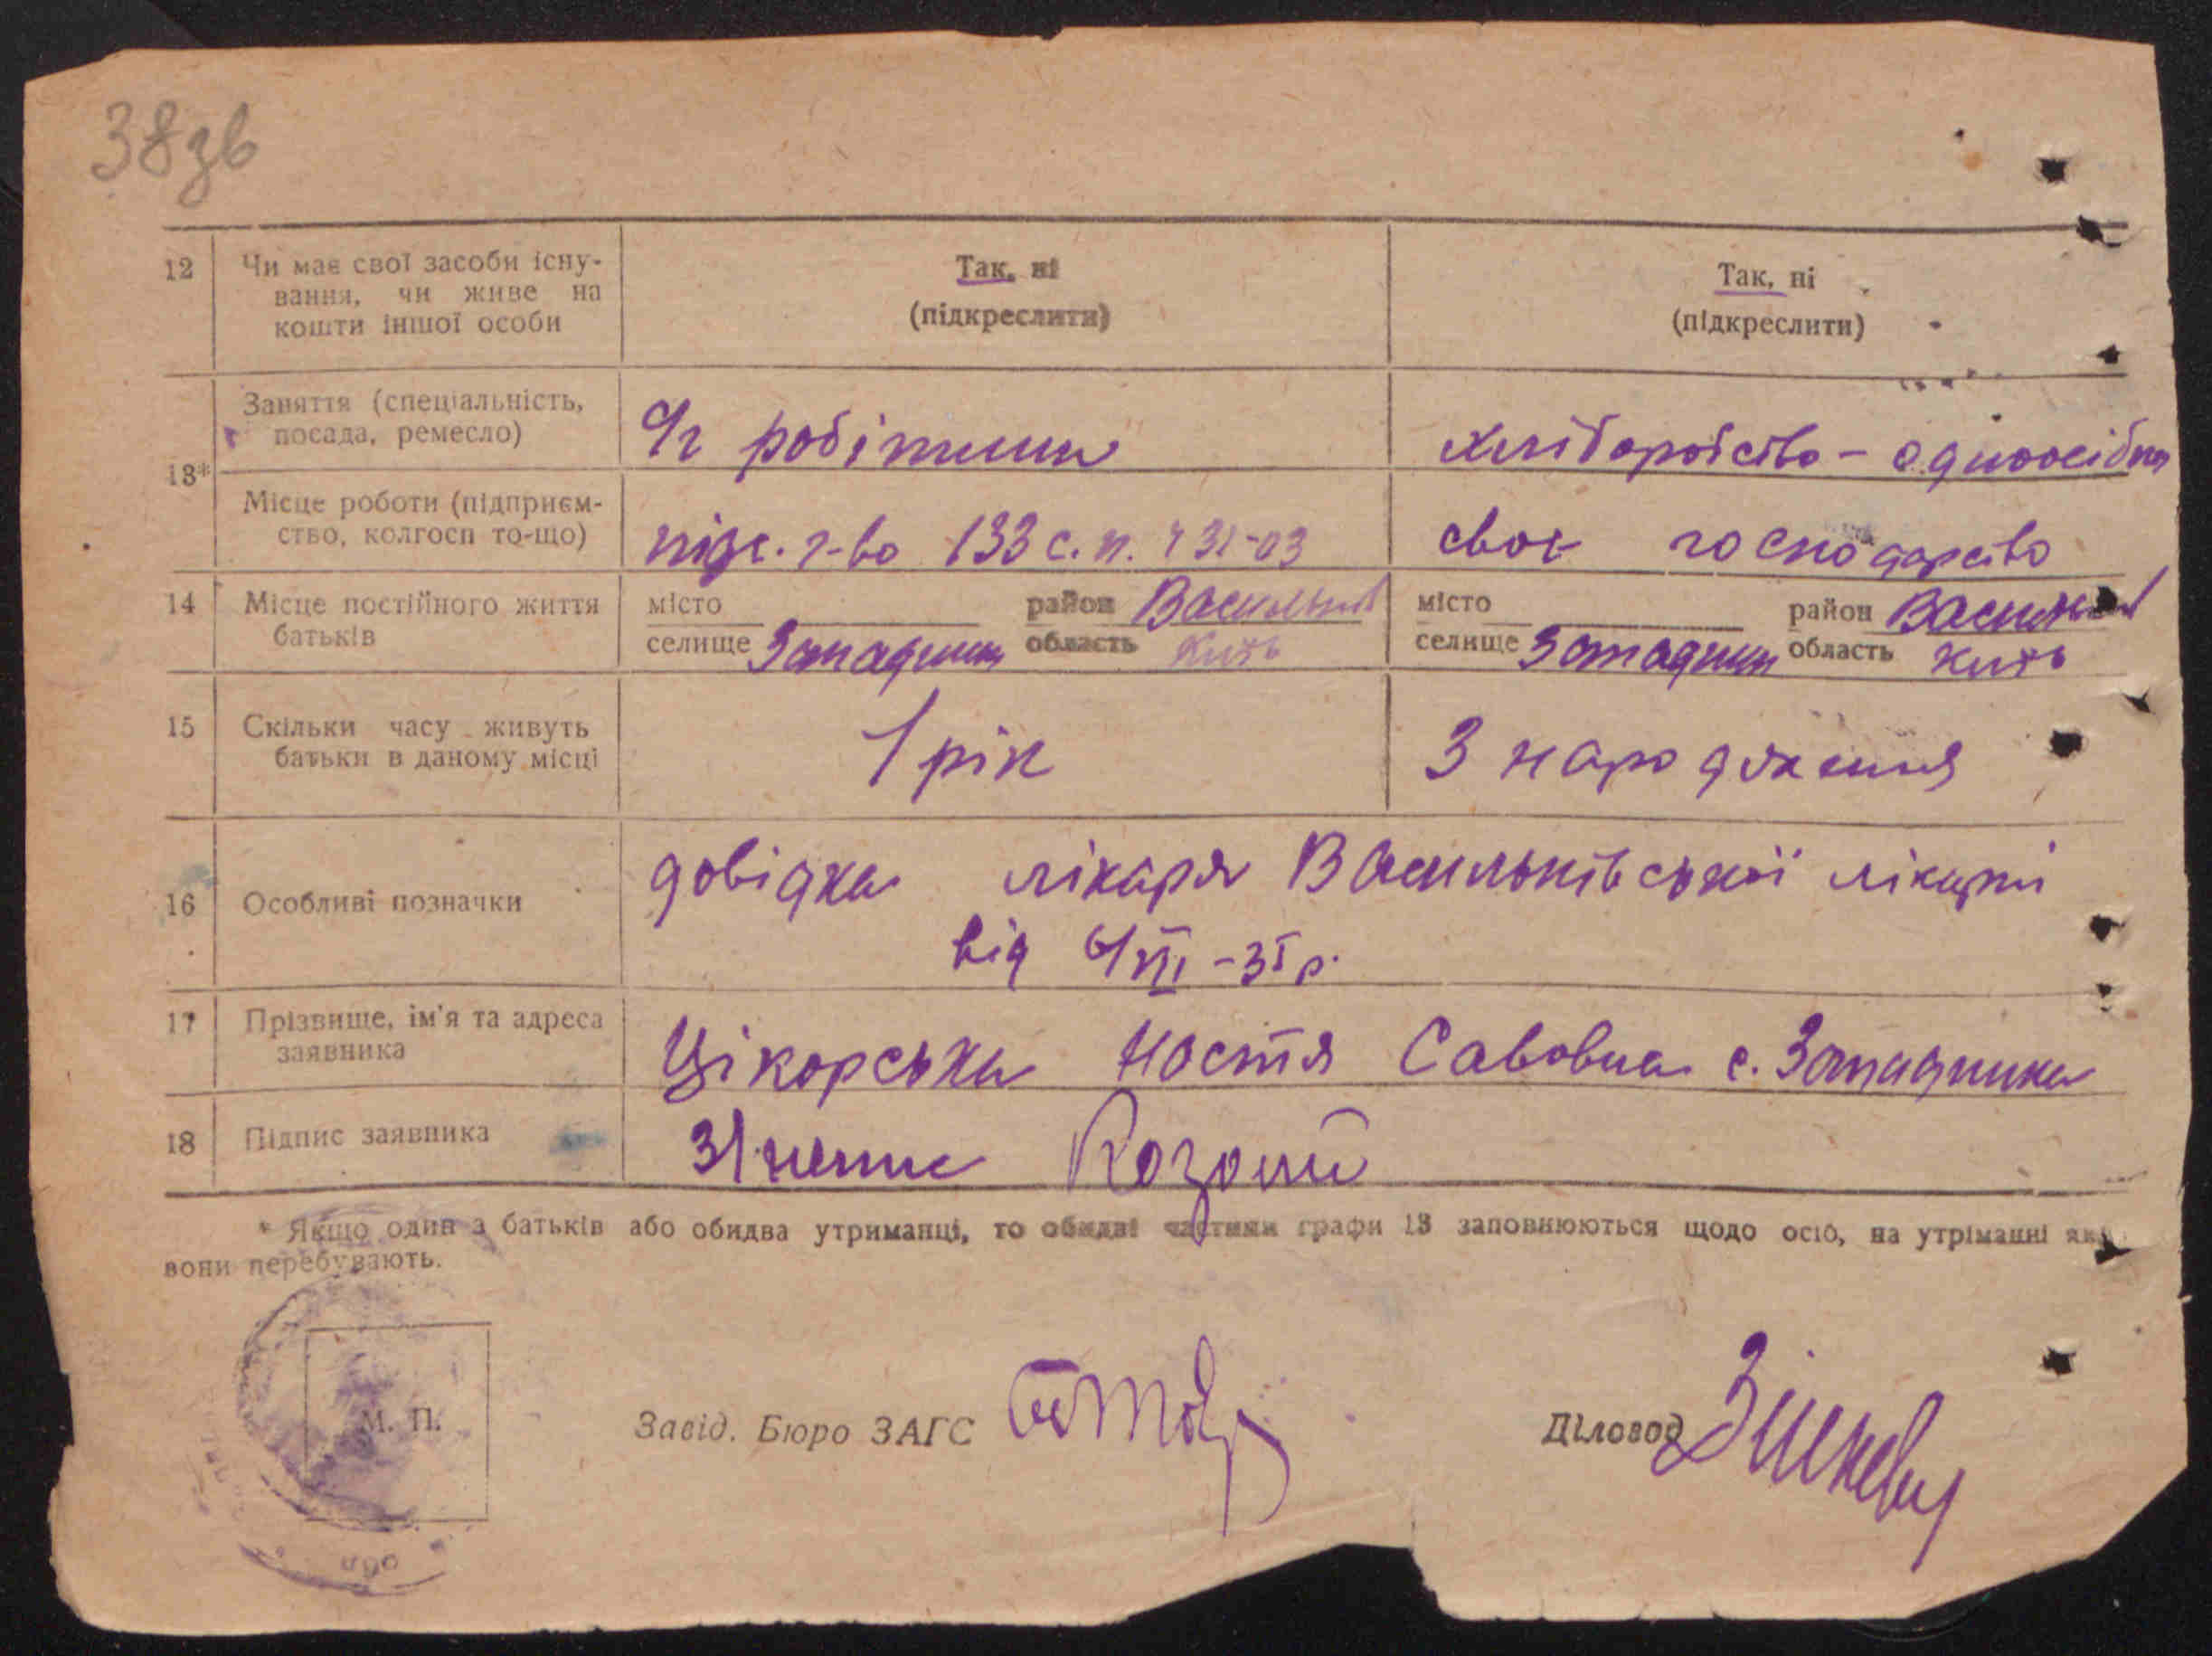 38зв
12 Чи має свої засоби існу- Так, ні Так, ні
вання, чи живе на (підкреслити) (підкреслити)
кошти іншої особи
Заняття (спеціальність,
посада, ремесло) робітник хліборобство – одноосібна
13*
Місце роботи (підприєм-
ство, колгосп то-що) підс. г-во 133 с.п. ч 31-03 своє господарство
14 Місце постійного життя місто район Васильків місто район Васильків
батьків селище Западинка область Київ селище Западинка область Київ
15 Скільки часу живуть 1 рік З народження
батьки в даному місці
16 Особливі позначки довідка лікаря Васильківської лікарні
від –35 р.
17 Прізвище, ім'я та адреса
заявника Цікорська Настя Савовна с. Западинка
18 Підпис заявника
* Якщо один з батьків або обидва утриманці, то обидві частини графи 13 заповнюються щодо осіб, на утріманні які
вони перебувають.
М. П. Завід. Бюро ЗАГС Діловод
обл